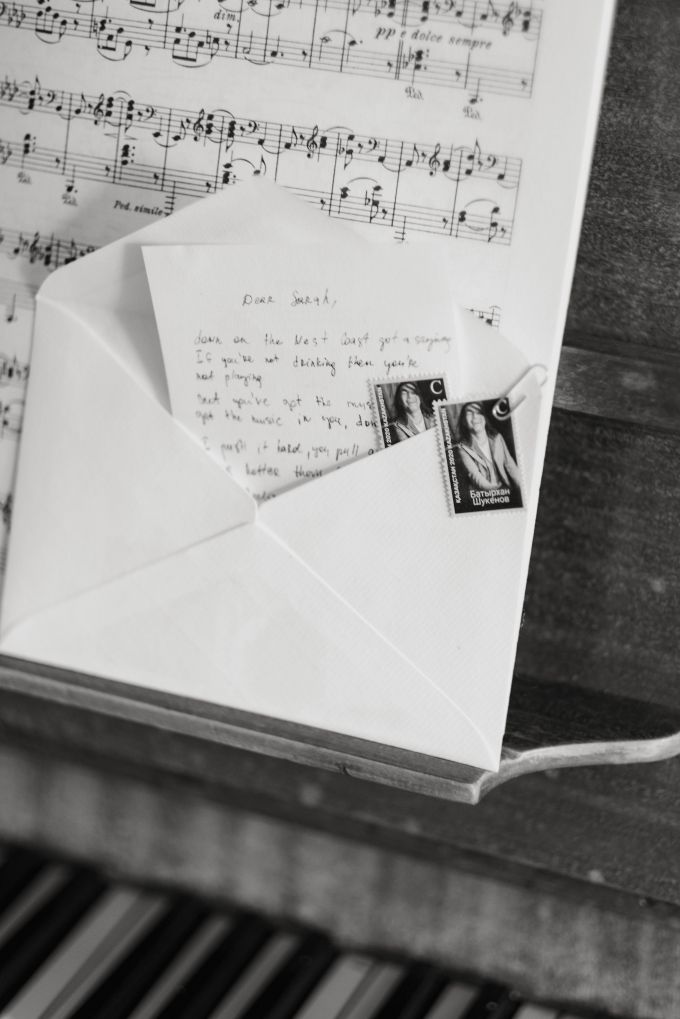 dim.
pp e dolce sempre
Ped.
Ped.
Ped.
Ped.
Ped. simile
Dear Sarah,
down on the West Coast got a saying
If you're not drinking then you're
not playing
but you've got the music
got the music in you, don
I push it hard, you pull a
better then
ҚАЗАҚСТАН 2020 KAZAKHSTAN
C
ҚАЗАҚСТАН 2020 KAZAKHSTAN
C
Батырхан
Шүкенов